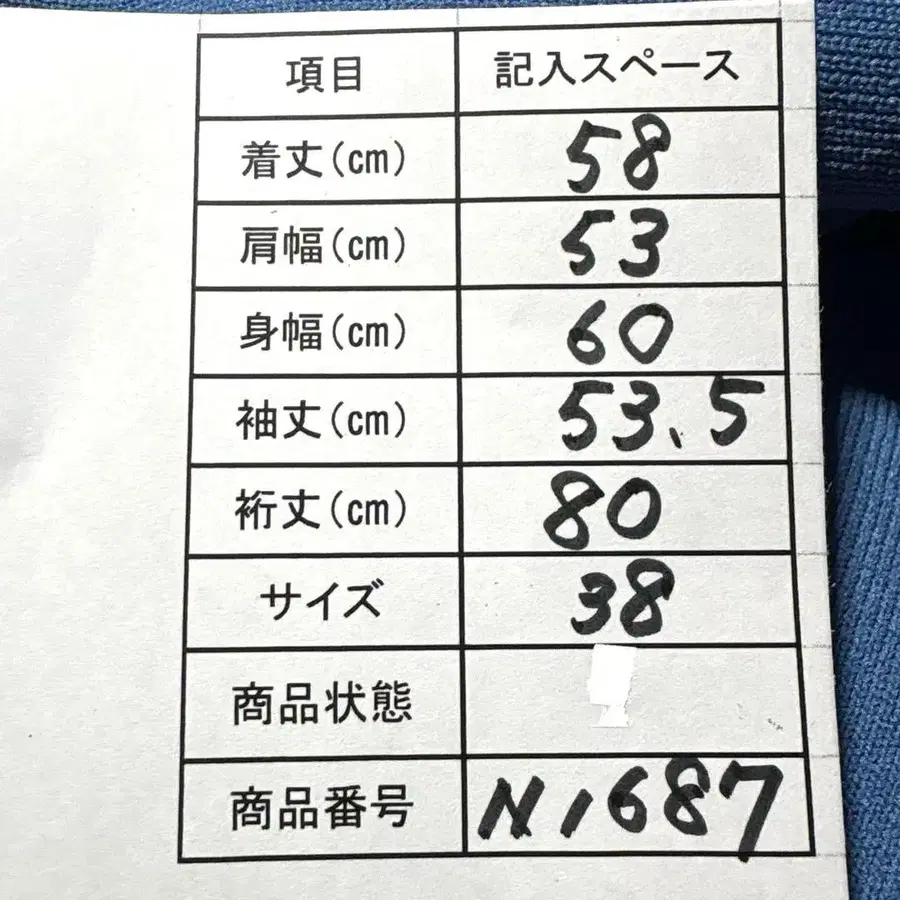 項目 記入スペース
着丈(cm) 58
肩幅(cm) 53
身幅(cm) 60
袖丈(cm) 53.5
裄丈(cm) 80
サイズ 38
商品状態
商品番号 N1687